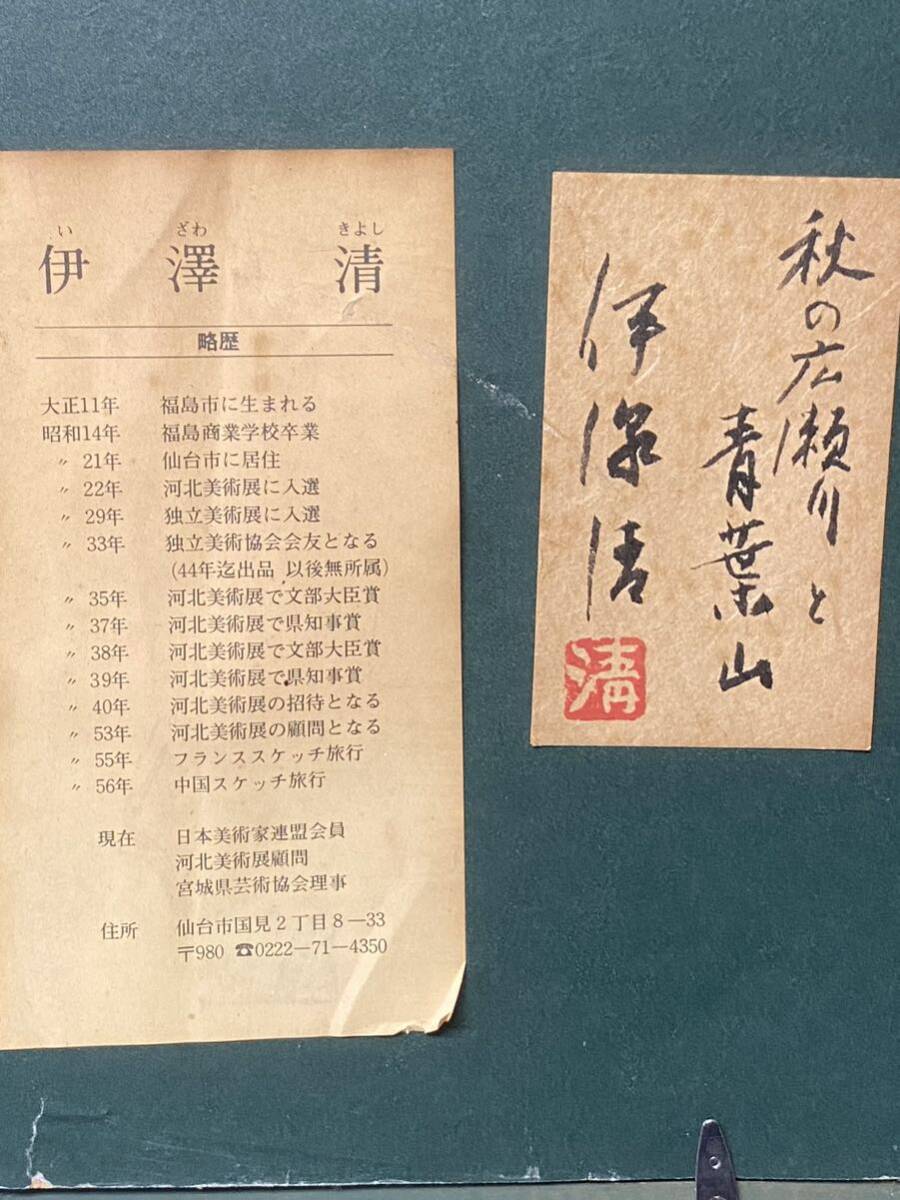 い ざわ きよし
伊 澤 清
略歴
大正11年 福島市に生まれる
昭和14年 福島商業学校卒業
〃 21年 仙台市に居住
〃 22年 河北美術展に入選
〃 29年 独立美術展に入選
〃 33年 独立美術協会会友となる
(44年迄出品 以後無所属)
〃 35年 河北美術展で文部大臣賞
〃 37年 河北美術展で県知事賞
〃 38年 河北美術展で文部大臣賞
〃 39年 河北美術展で県知事賞
〃 40年 河北美術展の招待となる
〃 53年 河北美術展の顧問となる
〃 55年 フランススケッチ旅行
〃 56年 中国スケッチ旅行
現在 日本美術家連盟会員
河北美術展顧問
宮城県芸術協会理事
住所 仙台市国見2丁目8―33
〒980 ☎0222―71―4350
秋の広瀬川と
青葉山
伊澤清
清